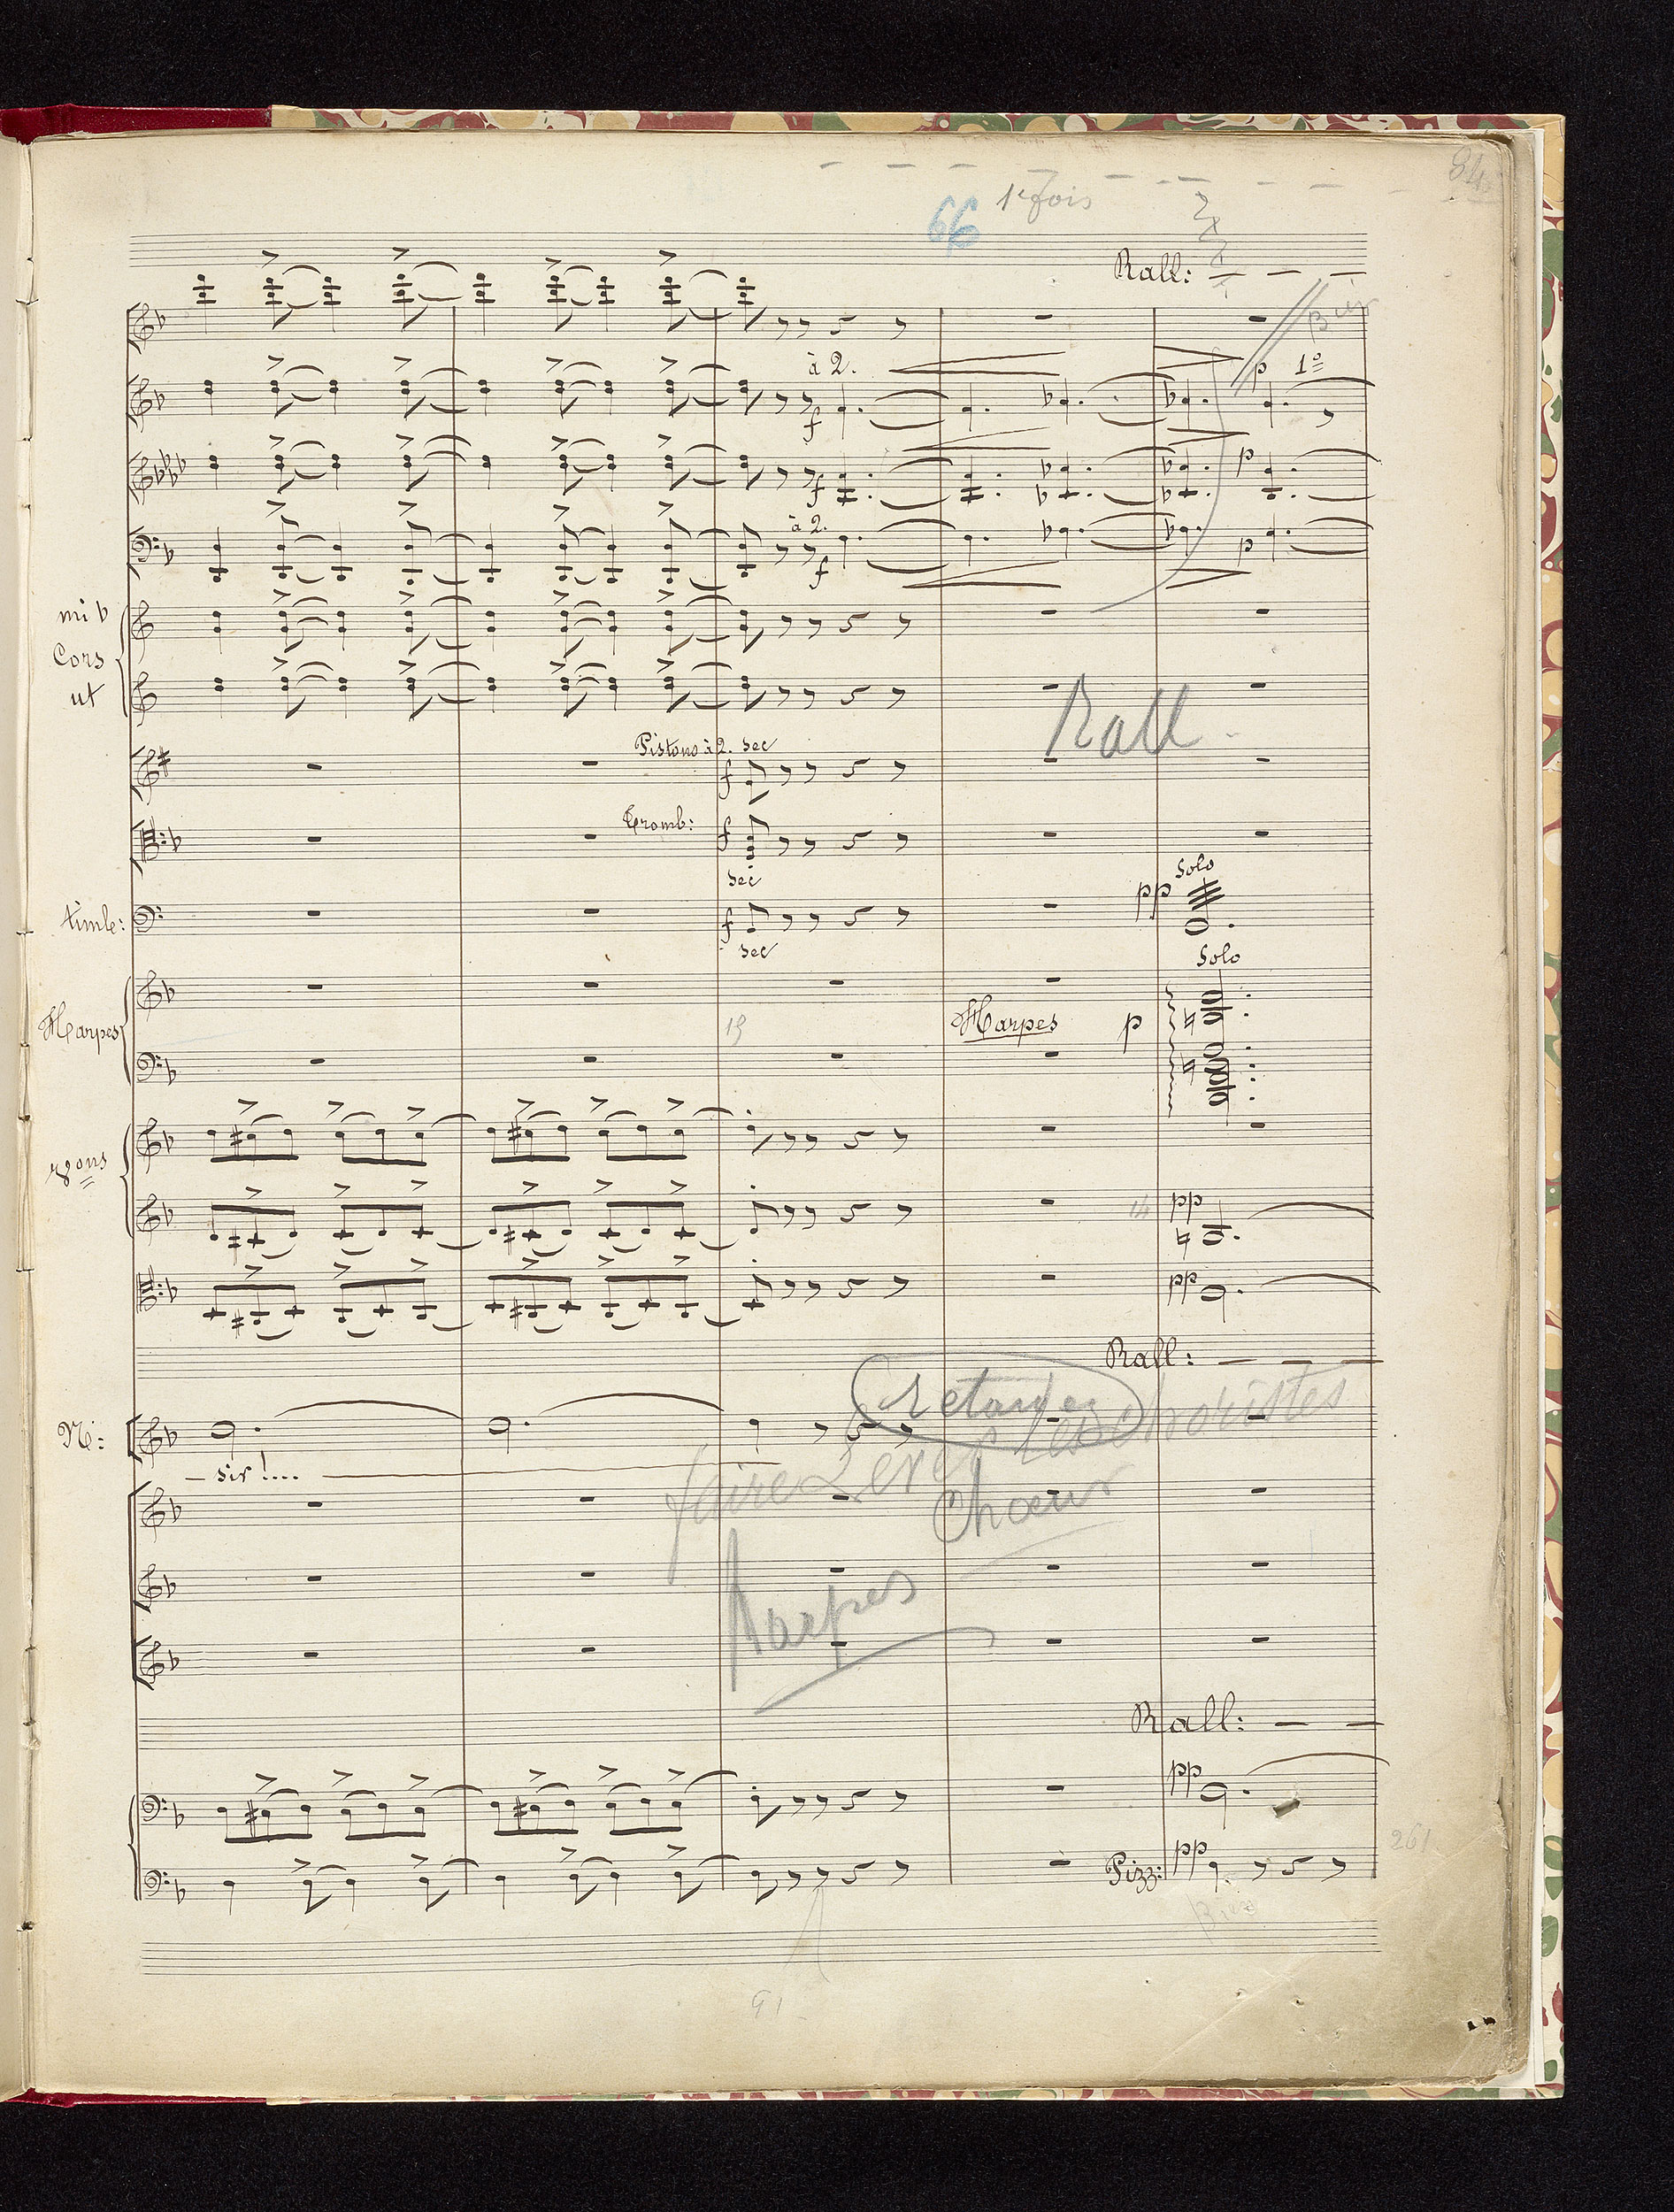 84
1e fois
66
Rall:
Bien
à 2.
p 1º
f
p
f
à 2.
p
f
mi b
Cors
ut
Rall
Pistons à 2. sec
f
Tromb:
f
sec
Solo
pp
timb:
f
sec
Solo
Harpes
19
Harpes p
vons
14 pp
pp
Rall:
retarder
N:
faire lever les choristes
_ sir !...
Chœur
Harpes
Rall:
pp
261
Pizz: pp
91